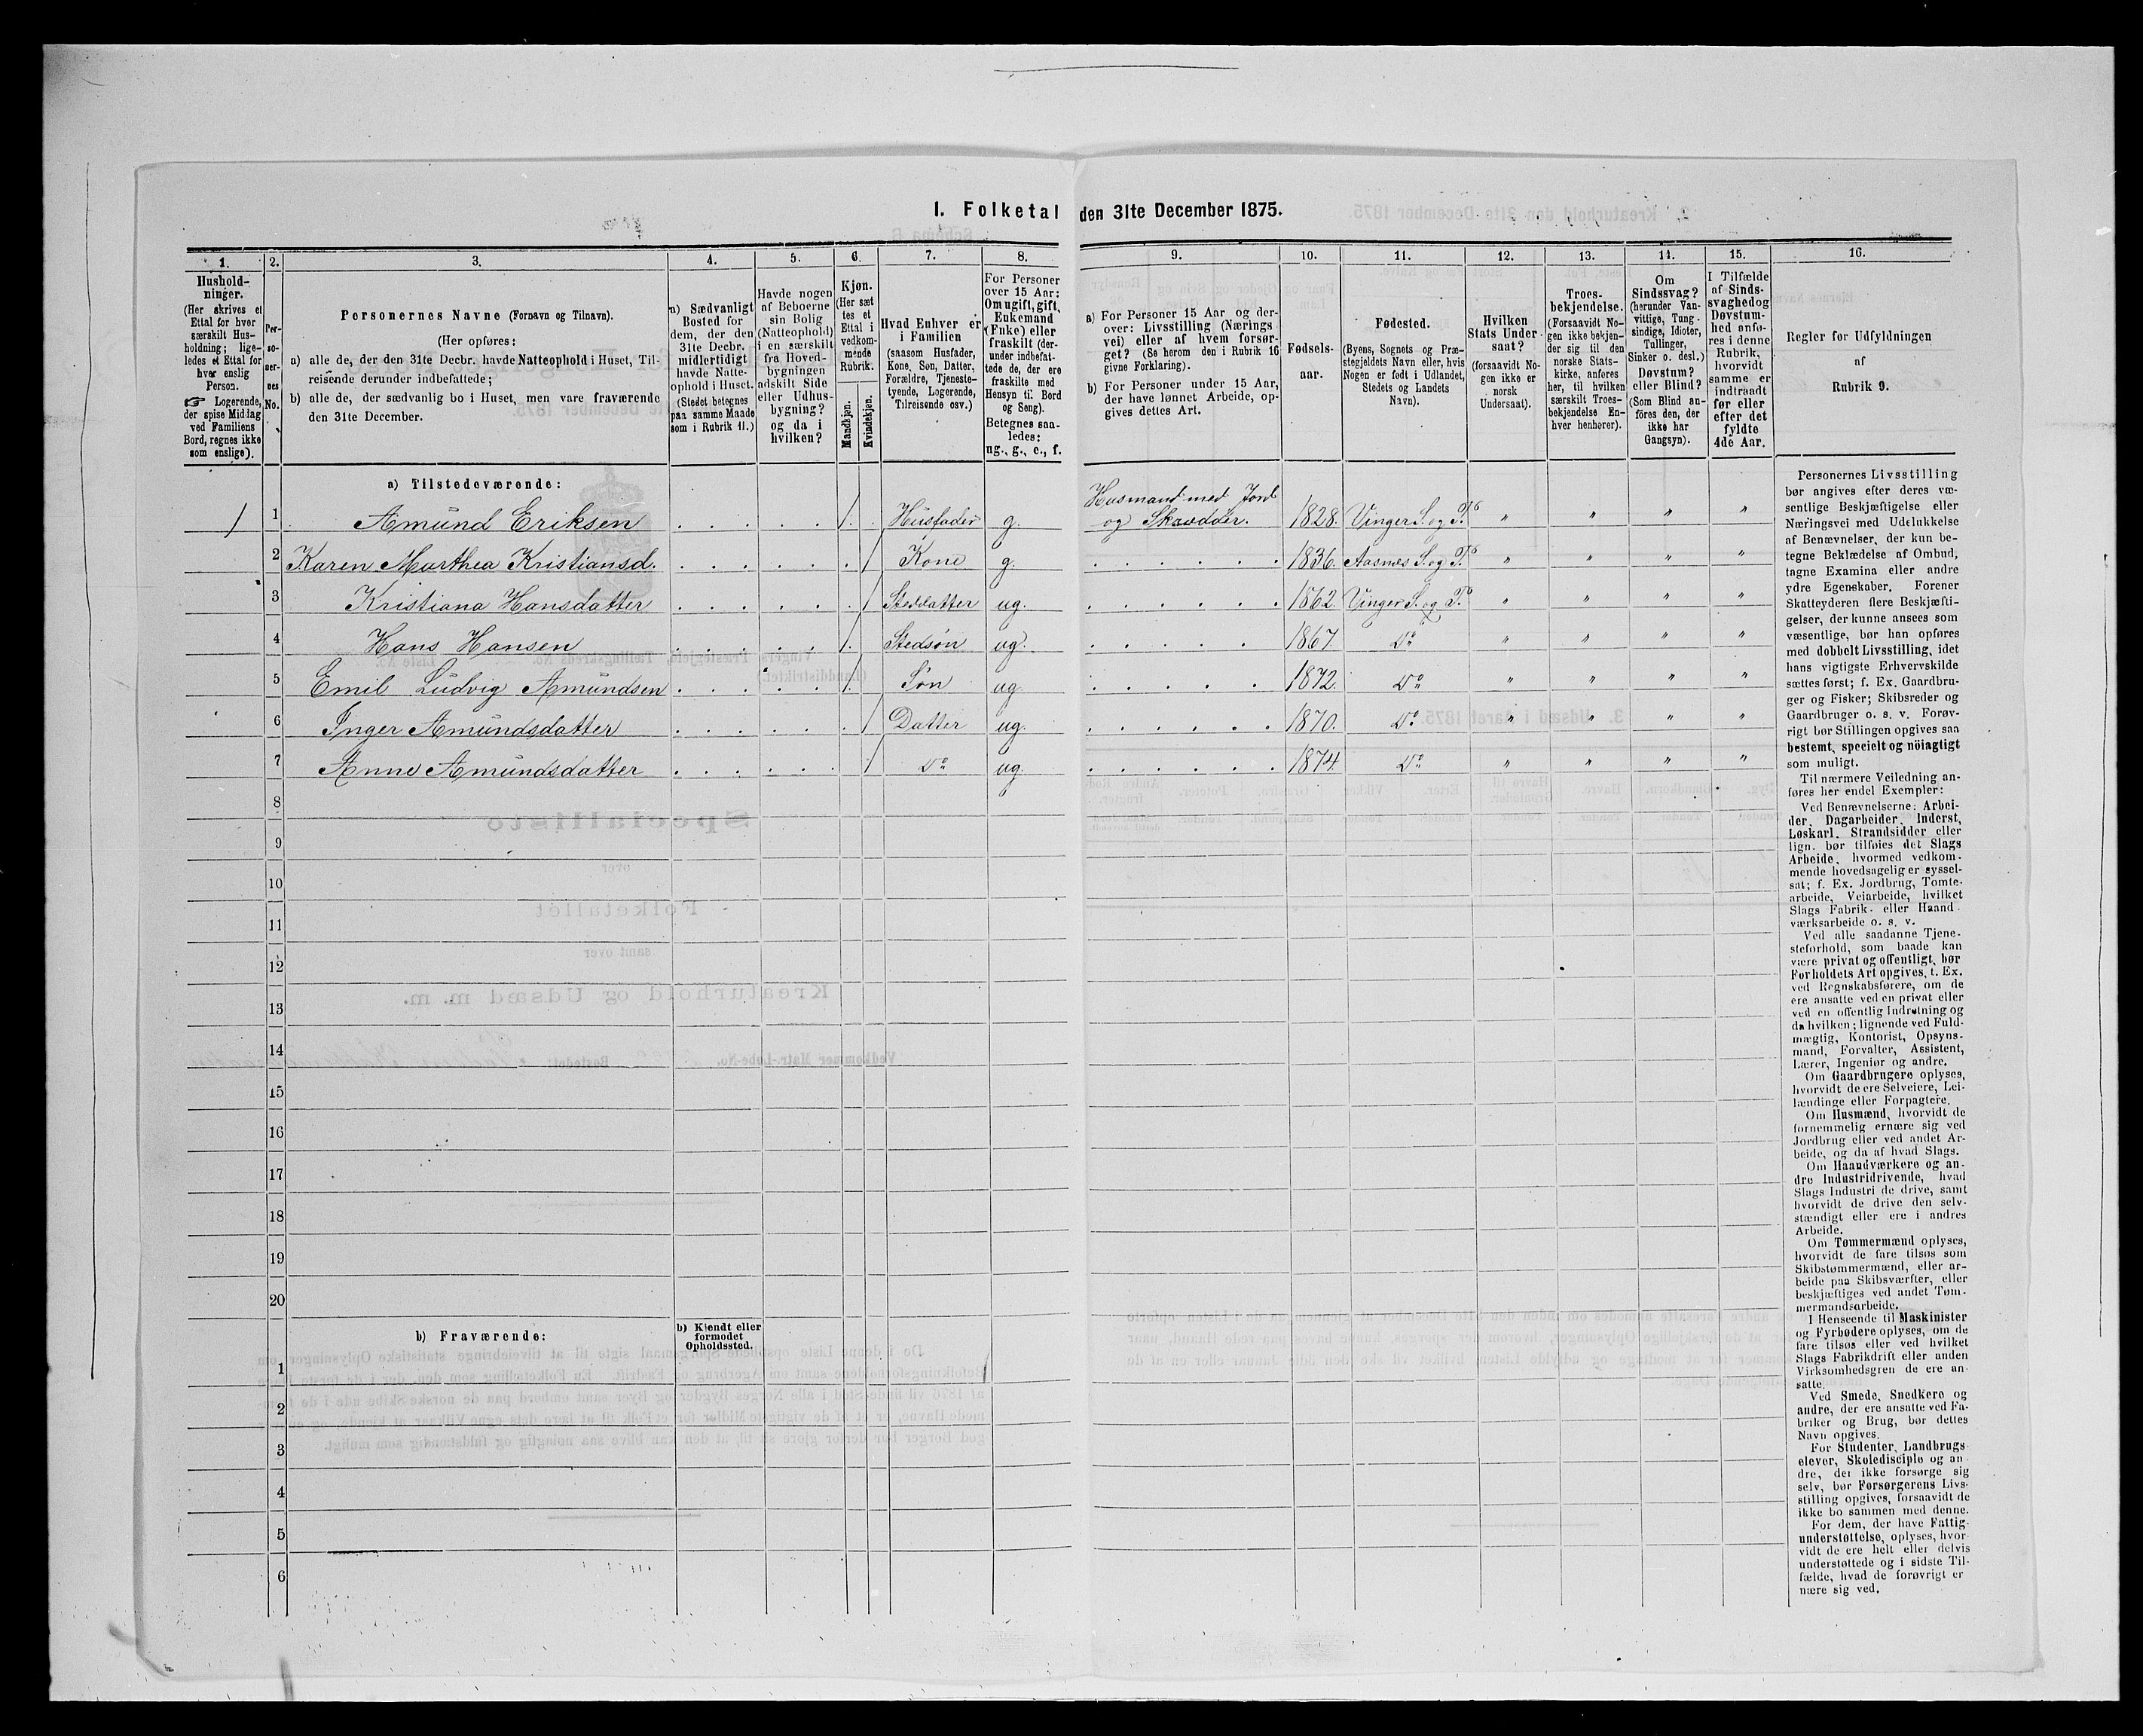 I. Folketal den 31te December 1875.
1.
Hushold-
ninger.
(Her skrives et
Ettal for hver
særskilt Hus-
holdning; lige-
ledes et Ettal for
hver enslig
Person.
☞ Logerende,
der spise Middag
ved Familiens
Bord, regnes ikke
som enslige).
2.
Per-
so-
ner-
nes
No.
3.
Personernes Navne (Fornavn og Tilnavn).
(Her opføres:
a) alle de, der den 31te Decbr. havde Natteophold i Huset, Til-
reisende derunder indbefattede;
b) alle de, der sædvanlig bo i Huset, men vare fraværende
den 31te December.
4.
a) Sædvanligt
Bosted for
dem, der den
31te Decbr.
midlertidigt
havde Natte-
ophold i Huset.
(Stedet betegnes
paa samme Maade
som i Rubrik 11.)
5.
Havde nogen
af Beboerne
sin Bolig
(Natteophold)
i en særskilt
fra Hoved-
bygningen
adskilt Side
eller Udhus-
bygning?
og da i
hvilken?
6.
Kjøn.
(Her sæt
tes et
Ettal i
vedkom-
mende
Rubrik.
Mandkjøn.
Kvindekjøn.
7.
Hvad Enhver er
i Familien
(saasom Husfader,
Kone, Søn, Datter,
Forældre, Tjeneste-
tyende, Logerende,
Tilreisende osv.)
8.
For Personer
over 15 Aar:
Om ugift, gift,
Enkemand
(Enke) eller
fraskilt (der-
under indbefat-
tede de, der ere
fraskilte med
Hensyn til Bord
og Seng).
Betegnes saa-
ledes:
ug., g., e., f.
9.
a) For Personer 15 Aar og der-
over: Livsstilling (Nærings
vei) eller af hvem forsør-
get? (Se herom den i Rubrik 16
givne Forklaring).
b) For Personer under 15 Aar,
der have lønnet Arbeide, op-
gives dettes Art.
10.
Fødsels-
aar.
11.
Fødested.
(Byens, Sognets og Præ-
stegjeldets Navn eller, hvis
Nogen er født i Udlandet,
Stedets og Landets
Navn).
12.
Hvilken
Stats Under-
saat?
(forsaavidt No-
gen ikke er
norsk
Undersaat).
13.
Troes-
bekjendelse.
(Forsaavidt No-
gen ikke bekjen-
der sig til den
norske Stats-
kirke, anføres
her, til hvilken
særskilt Troes-
bekjendelse En-
hver henhører).
14.
Om
Sindssvag?
(herunder Van-
vittige, Tung-
sindige, Idioter,
Tullinger,
Sinker o. desl.)
Døvstum?
eller Blind?
(Som Blind an-
føres den, der
ikke har
Gangsyn).
15.
I Tilfælde
af Sinds-
svaghed og
Døvstum-
hed anfø-
res i denne
Rubrik,
hvorvidt
samme er
indtraadt
før eller
efter det
fyldte
4de Aar.
16.
Regler for Udfyldningen
af
Rubrik 9.
a) Tilstedeværende:
1 1 Amund Eriksen . . . . . . 1. . Husfader g. Husmand med Jord og Skrædder. 1828. Vinger S. og P. " " " "
2 Karen Marthea Kristiansd. . . . . . . . 1 Kone g. . . . . . . 1836. Aasnes S. og P. " " " "
3 Kristiana Hansdatter . . . . . . . 1 Steddatter ug. . . . . . . 1862. Vinger S. og P. " " " "
4 Hans Hansen . . . . . . 1. Stedsøn ug. . . . . . . 1867. Do " " " "
5 Emil Ludvig Amundsen . . . . . . 1. Søn ug . . . . . . 1872. Do " " " "
6 Inger Amundsdatter . . . . . . . 1 Datter ug. . . . . . . 1870. Do " " " "
7 Anne Amundsdatter . . . . . . 1 Do ug. . . . . . . 1874. Do " " " "
8
9
10
11
12
13
14
15
16
17
18
19
20
b) Fraværende:
b) Kjendt eller
formodet
Opholdssted.
1
2
3
4
5
6
Personernes Livsstilling
bør angives efter deres væ-
sentlige Beskjæftigelse eller
Næringsvei med Udelukkelse
af Benævnelser, der kun be-
tegne Beklædelse af Ombud,
tagne Examina eller andre
ydre Egenskaber. Forener
Skatteyderen flere Beskjæfti-
gelser, der kunne ansees som
væsentlige, bør han opføres
med dobbelt Livsstilling, idet
hans vigtigste Erhvervskilde
sættes først; f. Ex. Gaardbru-
ger og Fisker; Skibsreder og
Gaardbruger o. s. v. Forøv-
rigt bør Stillingen opgives saa
bestemt, specielt og nöiagtigt
som muligt.
Til nærmere Veiledning an-
føres her endel Exempler:
Ved Benævnelserne: Arbei-
der, Dagarbeider, Inderst,
Løskarl, Strandsidder eller
lign. bør tilføies det Slags
Arbeide, hvormed vedkom-
mende hovedsagelig er syssel-
sat; f. Ex. Jordbrug, Tomte-
arbeide, Veiarbeide, hvilket
Slags Fabrik- eller Haand-
værksarbeide o. s. v.
Ved alle saadanne Tjene-
steforhold, som baade kan
være privat og offentligt, bør
Forholdets Art opgives, t. Ex.
ved Regnskabsførere, om de
ere ansatte ved en privat eller
ved en offentlig Indretning og
da hvilken; lignende ved Fuld-
mægtig, Kontorist, Opsyns-
mand, Forvalter, Assistent,
Lærer, Ingeniør og andre.
Om Gaardbrugere oplyses,
hvorvidt de ere Selveiere, Lei-
lændinge eller Forpagtere.
Om Husmænd, hvorvidt de
fornemmelig ernære sig ved
Jordbrug eller ved andet Ar-
beide, og da af hvad Slags.
Om Haandværkere og an-
dre Industridrivende, hvad
Slags Industri de drive, samt
hvorvidt de drive den selv-
stændigt eller ere i andres
Arbeide.
Om Tømmermænd oplyses,
hvorvidt de fare tilsøs som
Skibstømmermænd, eller ar-
beide paa Skibsværfter, eller
beskjæftiges ved andet Tøm-
mermandsarbeide.
I Henseende til Maskinister
og Fyrbødere oplyses, om de
fare tilsøs eller ved hvilket
Slags Fabrikdrift eller anden
Virksomhedsgren de ere an-
satte.
Ved Smede, Snedkere og
andre, der ere ansatte ved Fa-
briker og Brug, bør dettes
Navn opgives.
For Studenter, Landbrugs-
elever, Skoledisciple og an-
dre, der ikke forsørge sig
selv, bør Forsørgerens Livs-
stilling opgives, forsaavidt de
ikke bo sammen med denne.
For dem, der have Fattig-
understøttelse, oplyses, hvor-
vidt de ere helt eller delvis
understøttede og i sidste Til-
fælde, hvad de forøvrigt er
nære sig ved.